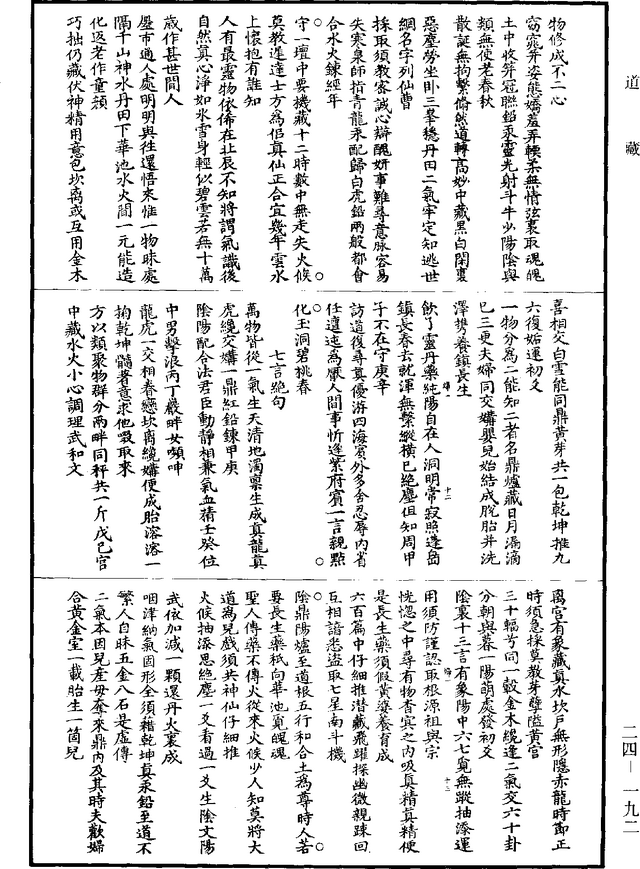 道藏
物修成不二心
窈窕弄姿態嬌羞弄輕柔無情弦裏取魂魄
土中收笄冠聯鉛汞靈光射斗牛少陽陰與
類無使老春秋
散誕無拘繫翛然道轉高妙中藏黑白閑裏
惡塵勞坐卧三峯穩丹田二氣牢定知逃世
網名字列仙曹
採取須教密誠心辯醜妍事難尋意脉容易
失寒泉師指青龍汞配歸白虎鉛兩般都會
合水火鍊經年
守一壇中要機藏十二時數中無走失火候
莫教遲達士方為侶真仙正合宜幾年雲水
上懷抱有誰知
人有最靈物依俙在北辰不知將謂氣識後
自然真心淨如氷雪身輕似碧雲若無十萬
歲作甚世間人
市通人處明明與往還悟來惟一物昧處
隔千山神水丹田下華池水火間一元能造
化返老作童顏
巧拙仍藏伏神精用意包坎离或互用金木
喜相交白雲能同鼎黃芽共一包乾坤推九
六復姤運初爻
一物分為二能知二者名鼎爐藏日月漏滴
已三更夫婦同交媾嬰兒始結成脫胎并洗
澤携養鎮長生
飲了靈丹藥純陽自在人洞明常寂照蓬岳
鎮長春去就渾無繫縱橫已絶塵但知周甲
子不在守庚辛
訪道復尋真優游四海賓外多含忍辱内省
任邅迍為厭人間事忻逢紫府賓一言親點
化玉洞碧桃春
七言絶句
萬物皆從一氣生天清地濁禀生成真龍真
虎纔交媾一鼎紅鉛鍊甲庚
陰陽配合法君臣動靜相兼氣血精壬癸位
中男擊浪丙丁巖畔女嚬呻
龍虎一交相眷戀坎离纔媾便成胎溶溶一
掬乾坤髓著意求他啜取來
方以類聚物群分兩畔同秤共一斤戊己宫
中藏水火小心調理武和文
离宫有象藏真水坎户無形隱赤龍時節正
時須急採莫教芽孽隘黃宫
三十輻兮同一轂金木纔逢二氣交六十卦
分朝與暮一陽萌處發初爻
陰裏十三言有象陽中六七覓無蹤抽添運
用須防謹認取根源祖與宗
恍惚之中尋有物杳冥之内吸真精真精便
是長生藥須假黃婆養育成
六百篇中仔細推潛藏飛躍探幽微親踈回
互相諳悉盗取七星南斗機
陰鼎陽爐至道根五行和合土為尊時人若
要長生藥秖向華池覓魄魂
聖人傳藥不傳火從來火候少人知莫將大
道為兒戲須共神仙仔細推
火候抽添思絶塵一爻看過一爻生陰文陽
武依加減一顆還丹火裏成
咽津納氣固形全須藉乾坤真汞鉛至道不
繁人自昧五金八石是虛傳
二氣本因兒産母奪來鼎内及其時夫歡婦
合黃金室一載胎生一箇兒
二四—一九二